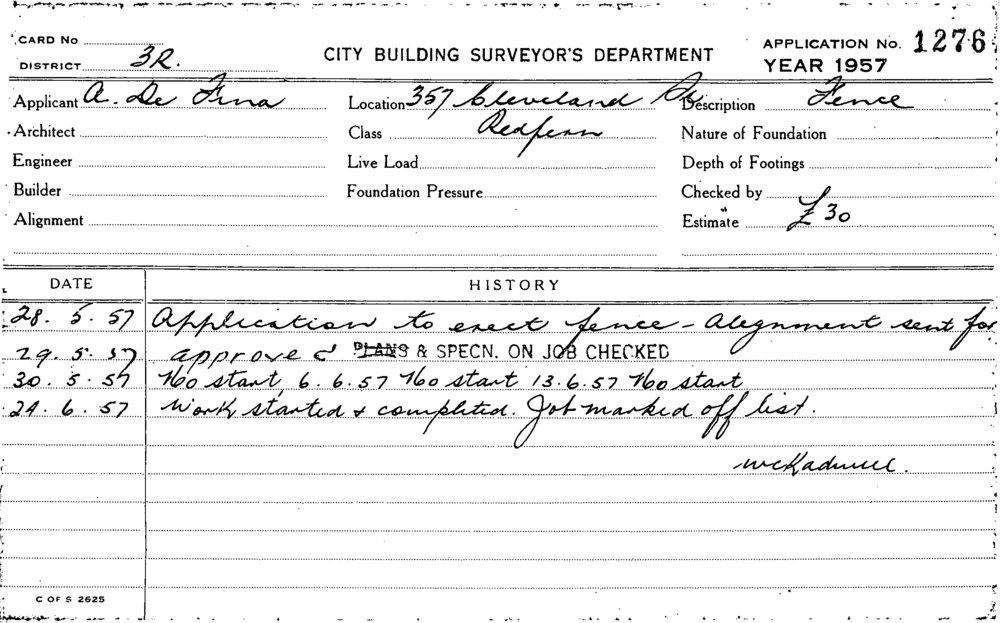 CARD No
DISTRICT 3R.
CITY BUILDING SURVEYOR'S DEPARTMENT
APPLICATION No. 1276
YEAR 1957
Applicant A. De Fina Location 357 Cleveland St Description Fence
Architect Class Redfern Nature of Foundation
Engineer Live Load Depth of Footings
Builder Foundation Pressure Checked by
Alignment Estimate £30
DATE HISTORY
28. 5. 57 Application to erect fence - Alegnment sent for
29. 5. 57 approved PLANS & SPECN. ON JOB CHECKED
30. 5. 57 No start, 6. 6. 57 No start 13. 6. 57 No start
24. 6. 57 Work started & completed. Job marked off list.
C OF S 2625